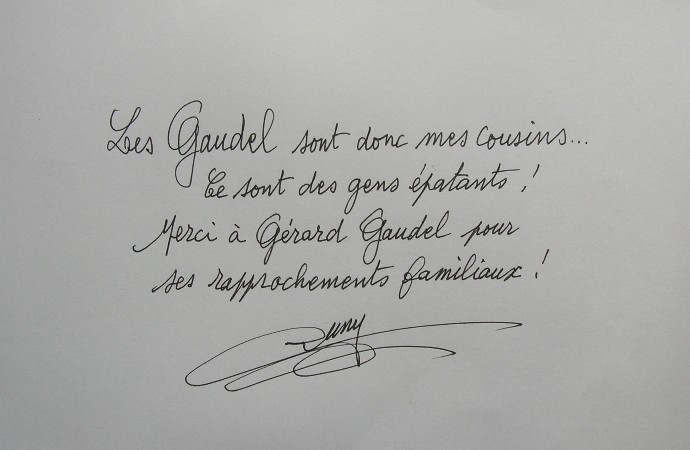 Les Gaudel sont donc mes cousins...
Ce sont des gens épatants !
Merci à Gérard Gaudel pour
ses rapprochements familiaux !